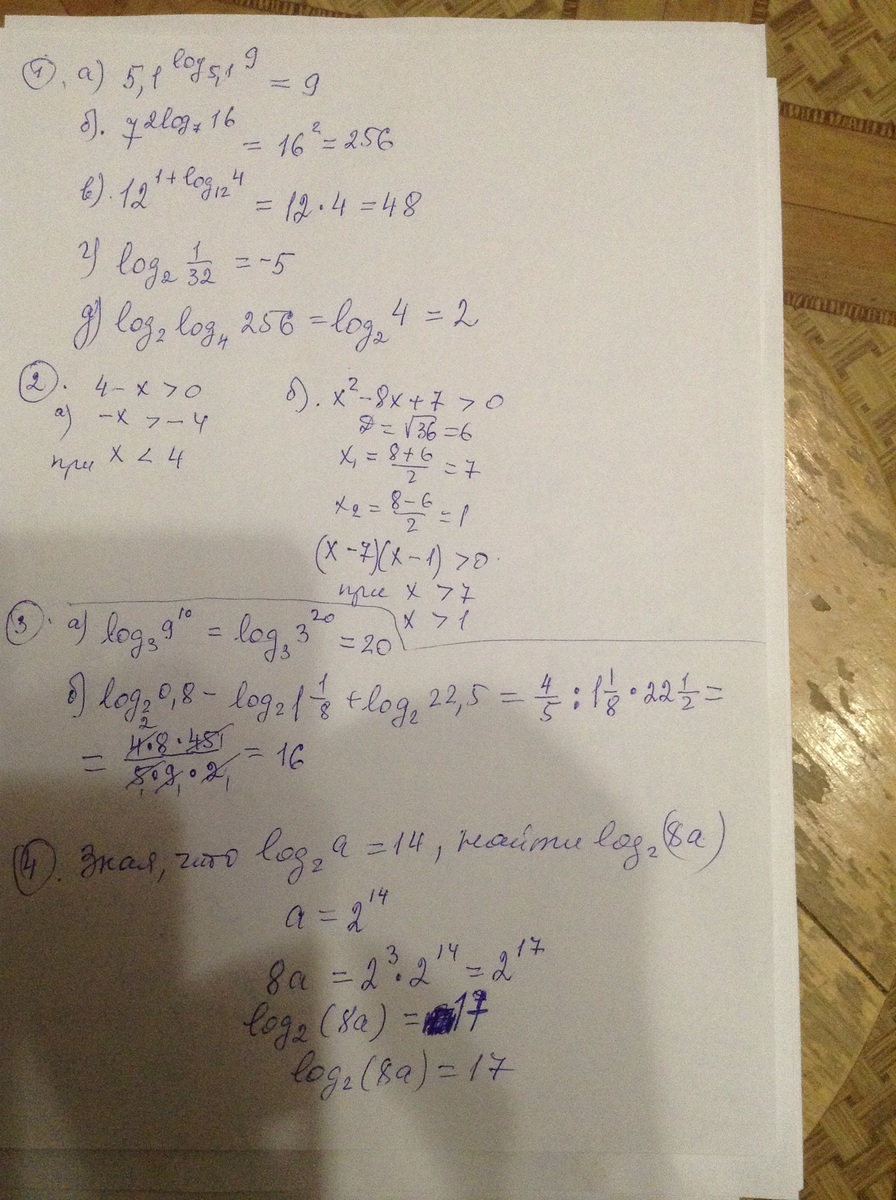 1. а) 5,1^(log_5,1 9) = 9
б). 7^(2log_7 16) = 16² = 256
в). 12^(1+log_12 4) = 12·4 = 48
г) log₂ 1/32 = -5
д) log₂ log₄ 256 = log₂ 4 = 2
2. а) 4-x > 0
-x > -4
при x < 4
б). x² - 8x + 7 > 0
D = √36 = 6
x₁ = (8+6)/2 = 7
x₂ = (8-6)/2 = 1
(x-7)(x-1) > 0
при x > 7
x > 1
3. а) log₃ 9¹⁰ = log₃ 3²⁰ = 20
б) log₂ 0,8 - log₂ 1 1/8 + log₂ 22,5 = 4/5 : 1 1/8 · 22 1/2 =
= (4·8·45)/(5·9·2) = 16
4. Зная, что log₂ a = 14, найти log₂ (8a)
a = 2¹⁴
8a = 2³·2¹⁴ = 2¹⁷
log₂ (8a) = 17
log₂ (8a) = 17